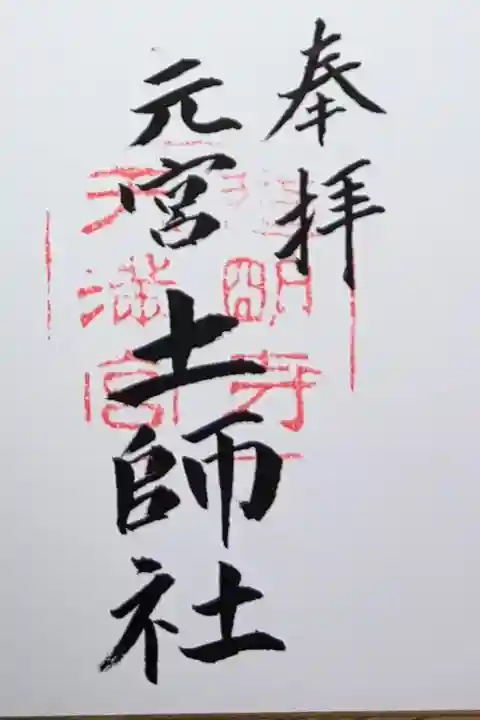 奉拝
元宮土師社
道明寺
天満宮